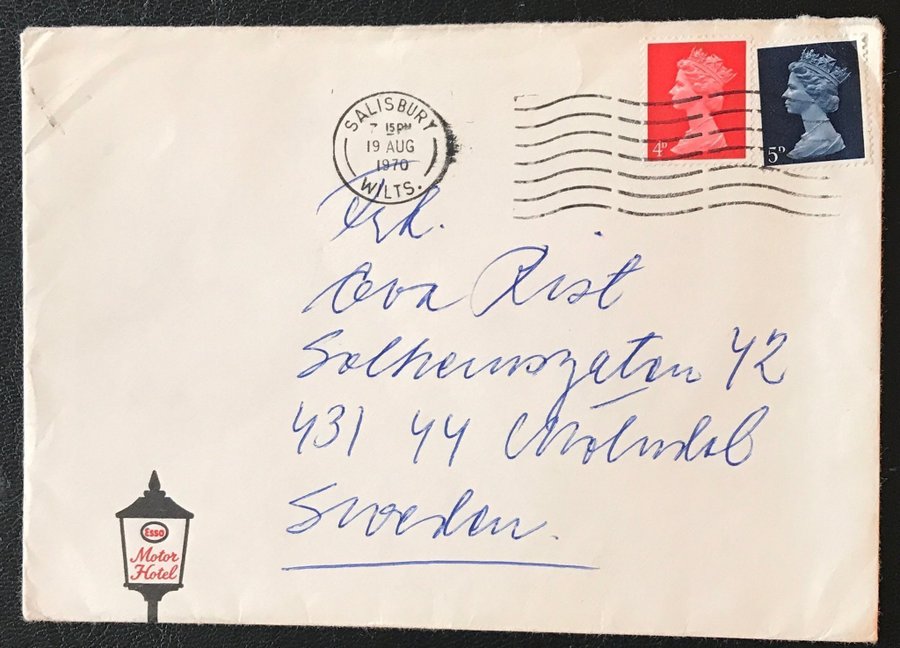 SALISBURY
7 15 PM
19 AUG
1970
WILTS.
4D
5D
Frk.
Eva Rist
Solhemsgatan 42
431 44 Mölndal
Sweden.
Esso
Motor
Hotel